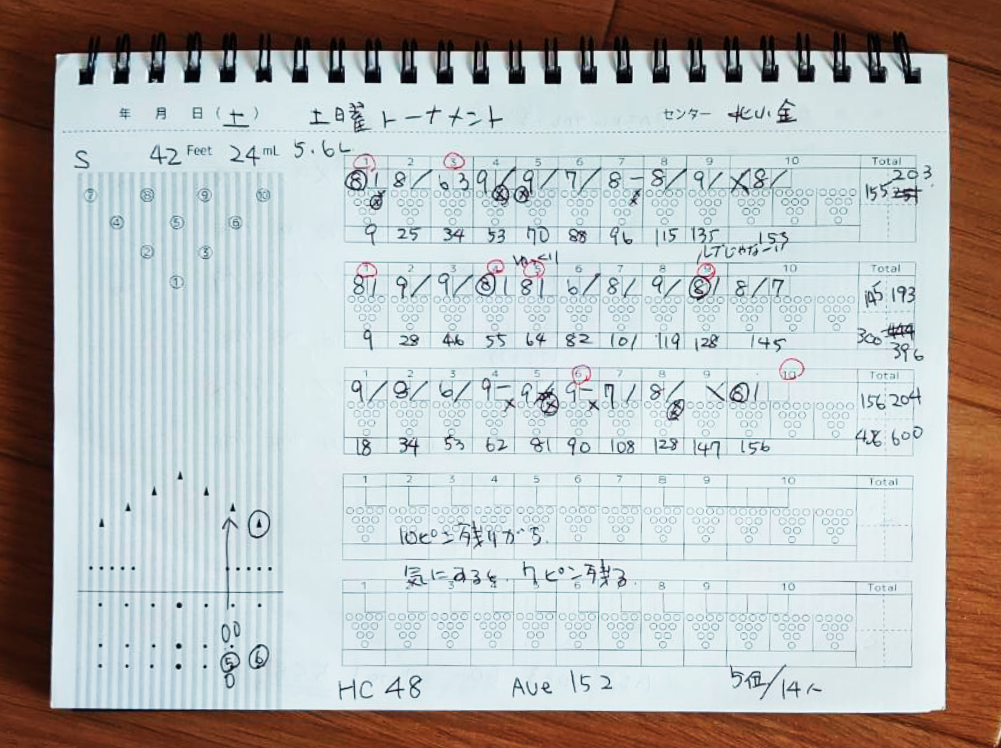 年 月 日 (土) 土曜トーナメント センター 北小金
S 42 Feet 24 mL 5.6L
1 2 3 4 5 6 7 8 9 10 Total
⑧1 8/ 63 9/ 9/ 7/ 8- 8/ 9/ X8/ 203
155
9 25 34 53 70 88 96 115 135 153
ゆっくり
1 2 3 4 5 6 7 8 9 10 Total
81 9/ 9/ ⑧1 81 6/ 8/ 9/ ⑧1 8/7 145 193
9 28 46 55 64 82 101 119 128 145 300
396
1 2 3 4 5 6 7 8 9 10 Total
9/ 8/ 6/ 9- 9/ 9- 7/ 8/ X ⑧1 156 204
18 34 53 62 81 90 108 128 147 156 456 600
1 2 3 4 5 6 7 8 9 10 Total
10ピン残りがち
気にすると、7ピン残る
1 2 3 4 5 6 7 8 9 10 Total
⑦ ⑧ ⑨ ⑩
④ ⑤ ⑥
② ③
①
⑤ ⑥
HC 48 Ave 152 5位/14人